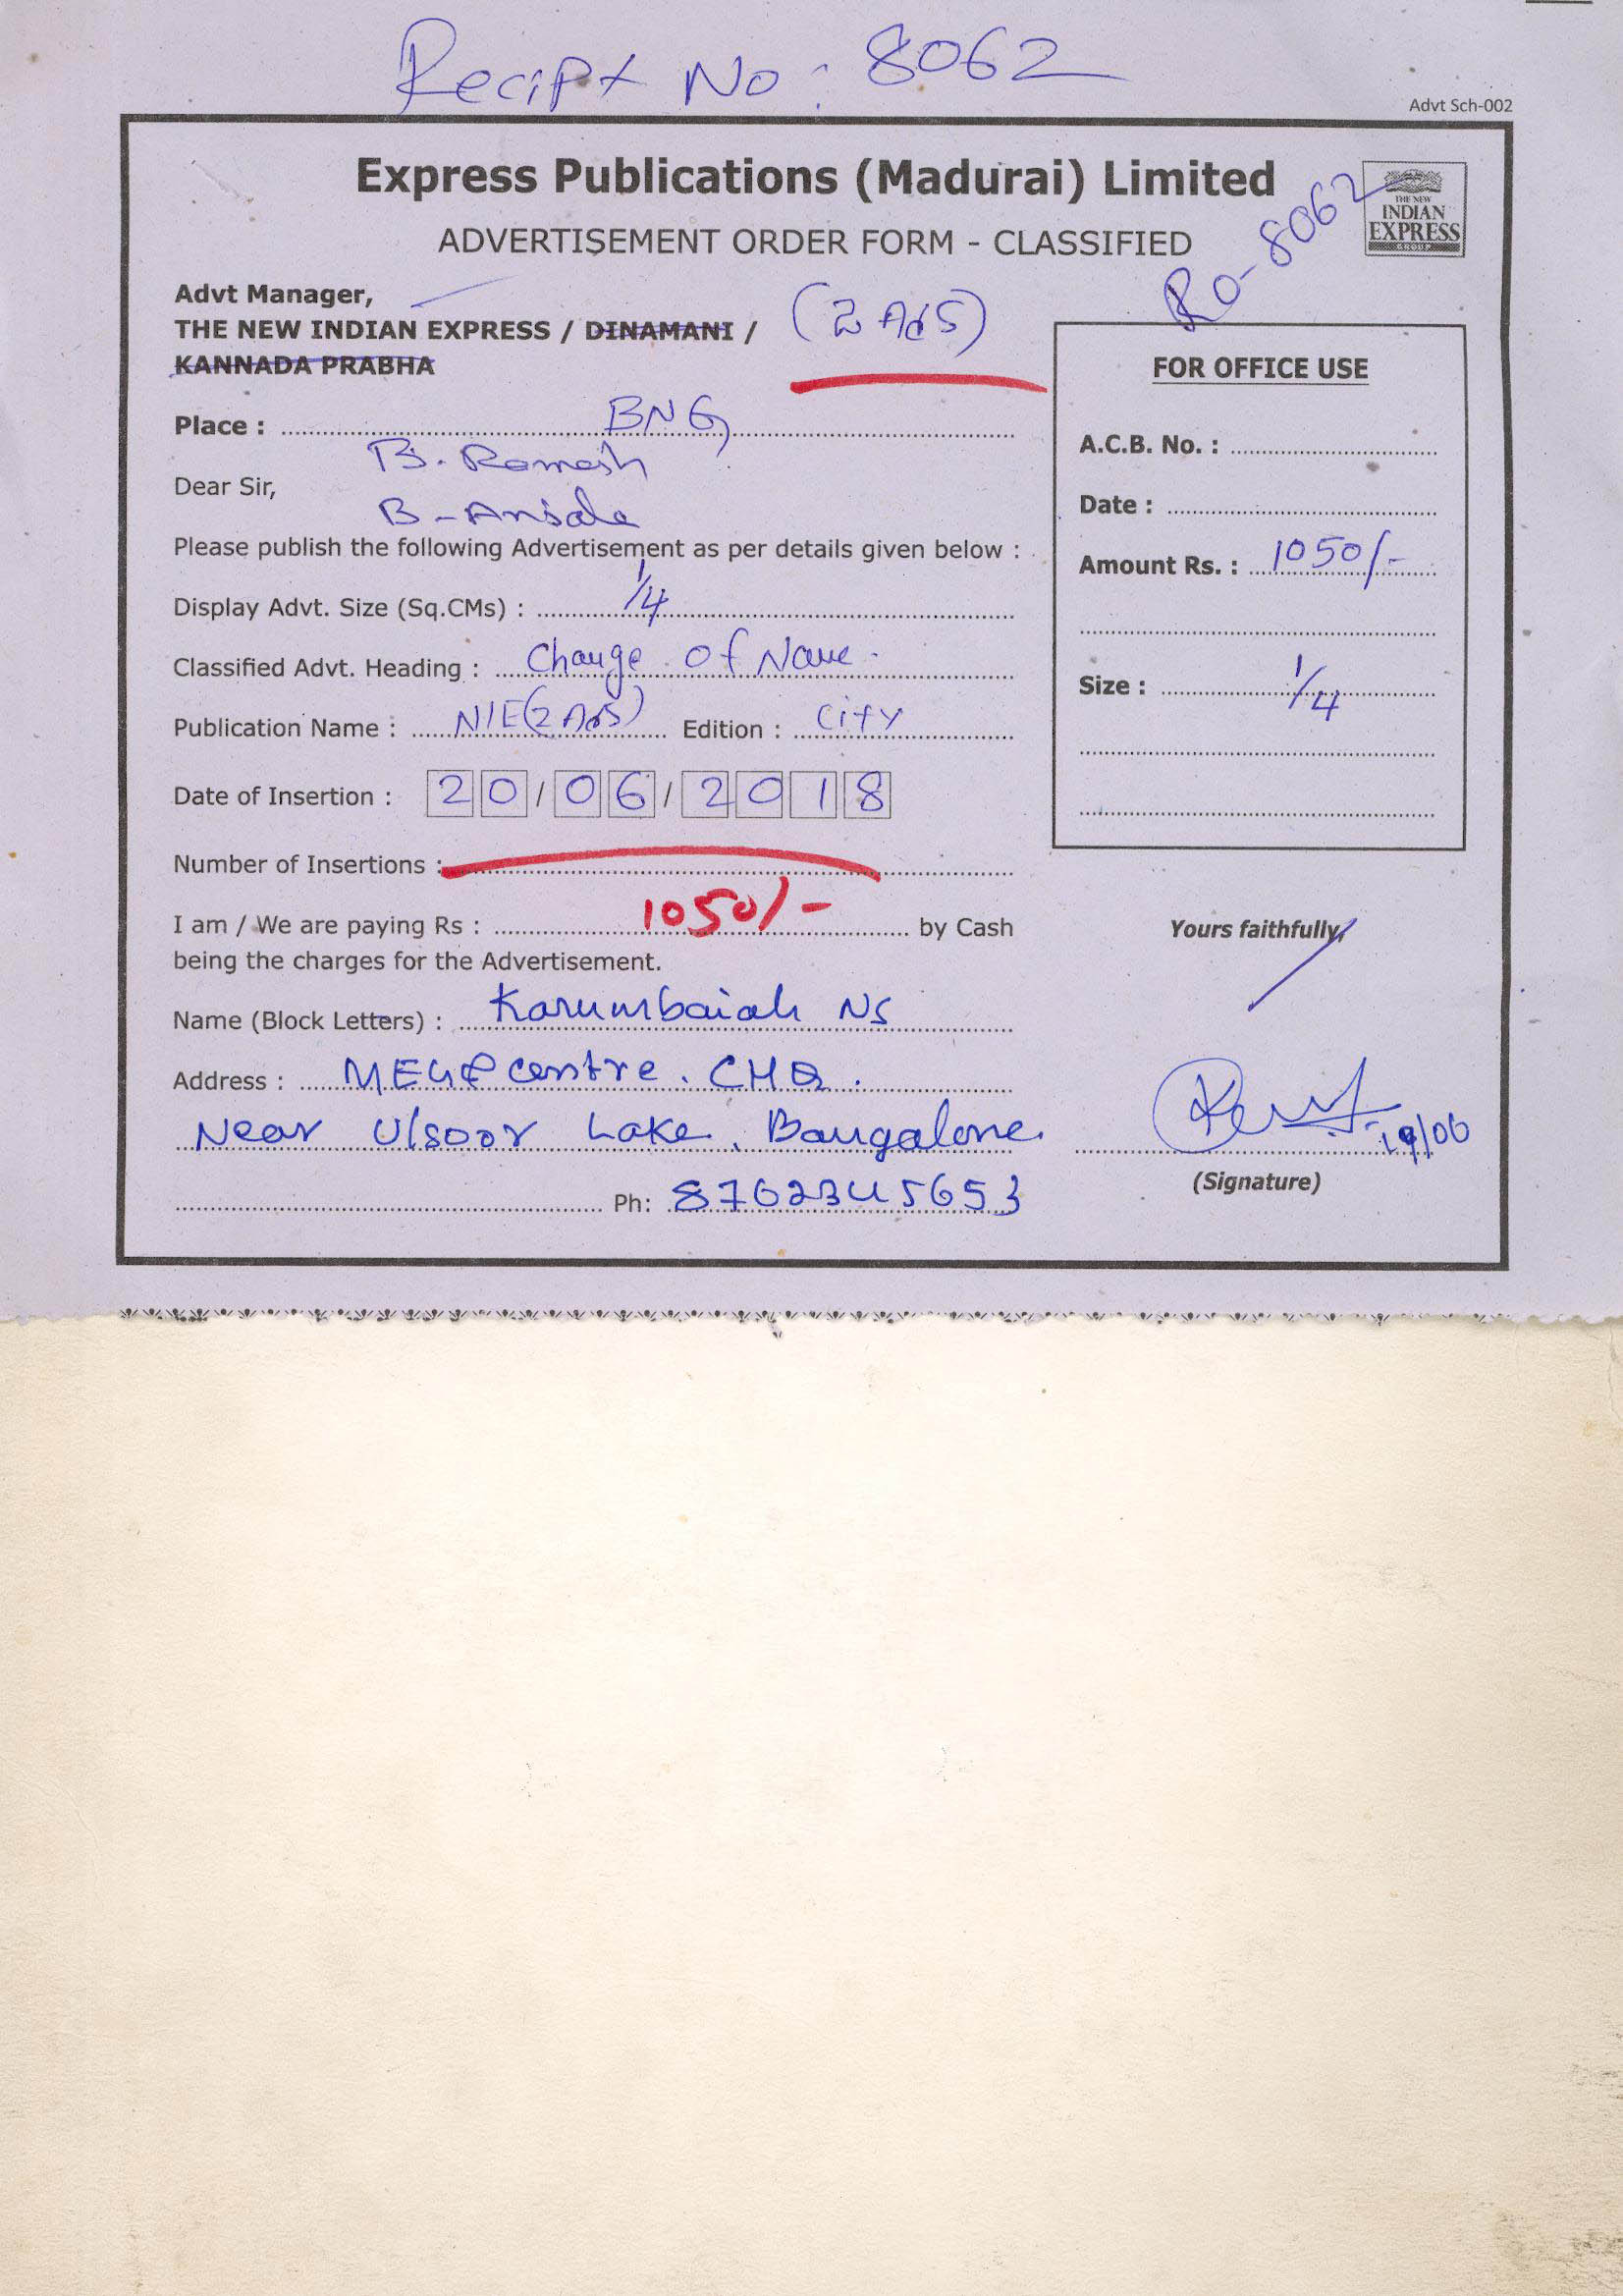 Recipt No: 8062
Advt Sch-002
Express Publications (Madurai) Limited
ADVERTISEMENT ORDER FORM - CLASSIFIED
RO-8062
THE NEW
INDIAN
EXPRESS
GROUP
Advt Manager,
THE NEW INDIAN EXPRESS / DINAMANI / (2 Ads)
KANNADA PRABHA
Place : BNG
B. Ramesh
Dear Sir,
B-
Please publish the following Advertisement as per details given below :
Display Advt. Size (Sq.CMs) : 1/4
Classified Advt. Heading : Change of Name.
Publication Name : NIE(2 Ads) Edition : City
Date of Insertion : 20/06/2018
Number of Insertions :
I am / We are paying Rs : 1050/- by Cash
being the charges for the Advertisement.
Name (Block Letters) : Karumbaiah NS
Address : centre. CHQ.
Near Ulsoor Lake, Bangalore.
Ph: 8762345653
FOR OFFICE USE
A.C.B. No. :
Date :
Amount Rs. : 1050/-
Size : 1/4
Yours faithfully,
19/06
(Signature)